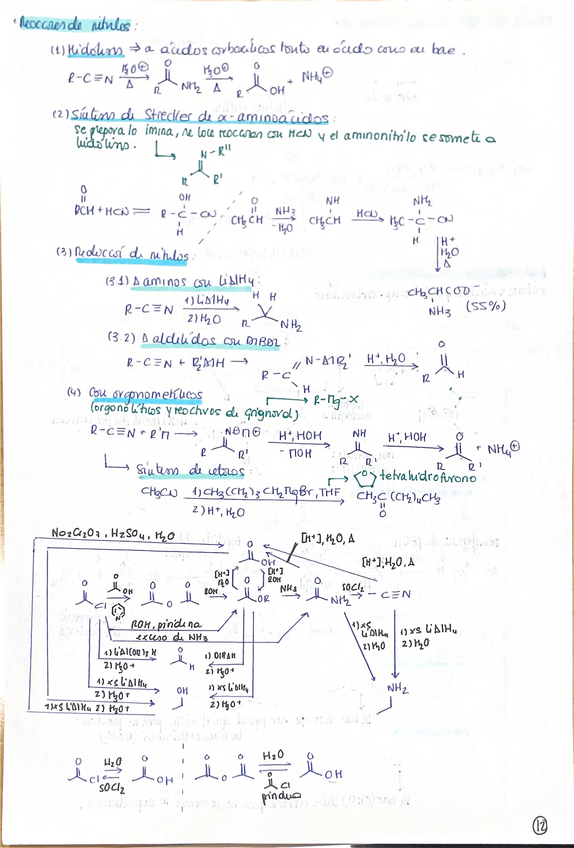 Reacciones de nitrilos:
(1) Hidólisis ⇒ a ácidos carboxílicos tanto en ácido como en base.
R-C≡N H₃O⊕ Δ O R NH₂ H₃O⊕ Δ O R OH + NH₄⊕
(2) Síntesis de Strecker de α-aminoácidos:
se prepara la imina, se hace reaccionar con HCN y el aminonitrilo se somete a
hidólisis.
N-R''
R R'
O OH O NH NH₂
RCH + HCN R-C-CN CH₃CH NH₃ -H₂O CH₃CH HCN H₃C-C-CN
H H
H⁺
H₂O
Δ
(3) Reducción de nitrilos:
(3.1) A aminas con LiAlH₄:
CH₃CHCOO⁻
NH₃ (55%)
R-C≡N 1) LiAlH₄ 2) H₂O H H R NH₂
(3.2) A aldehídos con DIBAL
R-C≡N + R'₂AlH → R-C N-AlR'₂ H H⁺, H₂O O R H
(4) Con organometálicos → R-Mg-X
(organolíticos y reactivos de grignard)
R-C≡N + R'M → N⊖M⊕ R R' H⁺, HOH -MOH NH R R' H⁺, HOH O R R' + NH₄⊕
Síntesis de cetonas O → tetrahidrofurano
CH₃CN 1) CH₃(CH₂)₃CH₂MgBr, THF 2) H⁺, H₂O CH₃C(CH₂)₄CH₃
O
Na₂Cr₂O₇, H₂SO₄, H₂O
[H⁺], H₂O, Δ
O OH
[H⁺], H₂O, Δ
[H⁺] H₂O [H⁺] ROH
O Cl O OH N O O O ROH O OR NH₃ O NH₂ SOCl₂ -C≡N
ROH, piridina
exceso de NH₃
1) LiAl(OR)₃H 2) H₃O⁺ O H 1) DIBAH 2) H₃O⁺
1) xs LiAlH₄ 2) H₂O
1) xs LiAlH₄ 2) H₂O
1) xs LiAlH₄ 2) H₃O⁺ OH 1) xs LiAlH₄ 2) H₃O⁺
1) xs LiAlH₄ 2) H₃O⁺
NH₂
O Cl H₂O SOCl₂ O OH
O O O H₂O O Cl piridina O OH
12